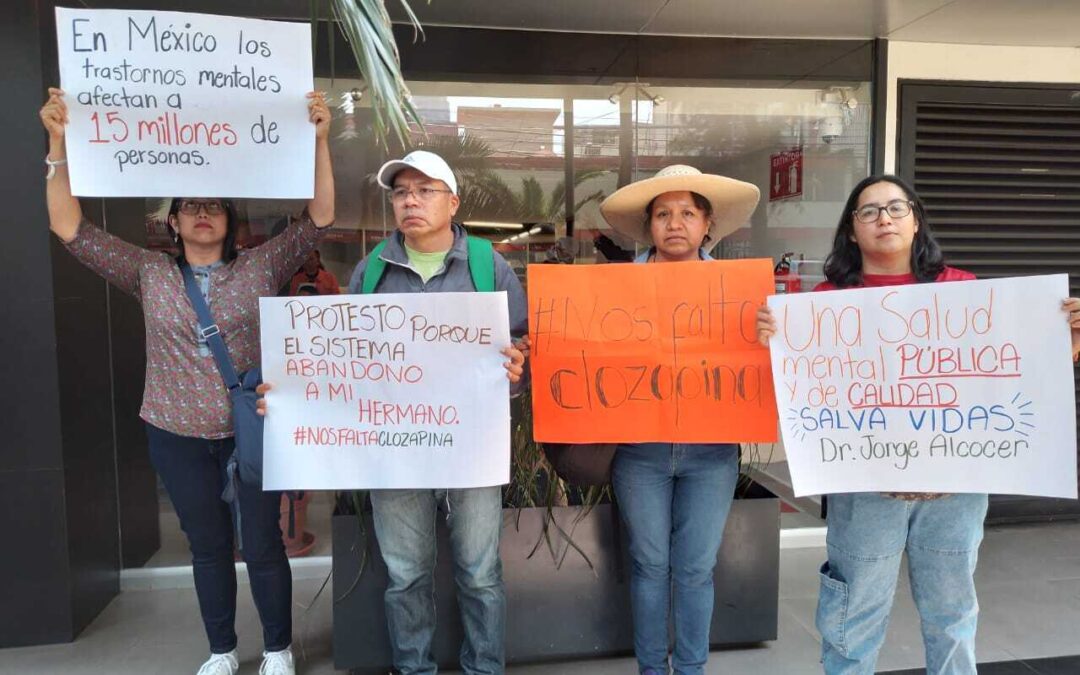 En México los
trastornos mentales
afectan a
15 millones de
personas.
PROTESTO PORQUE
EL SISTEMA
ABANDONO
A MI
HERMANO.
#NOSFALTACLOZAPINA
#Nos falta
clozapina
Una Salud
mental PÚBLICA
y de CALIDAD
SALVA VIDAS
Dr. Jorge Alcocer
EXTINTOR